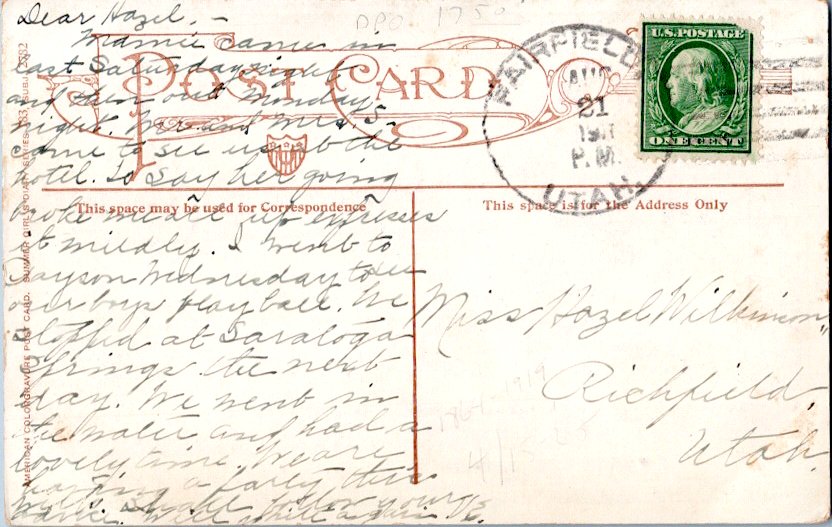 Dear Hazel. —
Mamie came in
last Saturday night
and then out Monday
night. Mr and Mrs. S-
came to see us at the
hotel. To say her going
broke me all up expresses
it mildly. I went to
Payson Wednesday to see
our boys play ball. We
stopped at Saratoga
Springs the next
day. We went in
the water and had a
lovely time. We are
having a party this
DPO 1750
POST CARD
This space may be used for Correspondence
This space is for the Address Only
FAIRFIELD
AUG
21
P.M.
UTAH.
U.S. POSTAGE
ONE CENT
Miss Hazel Wilkinson
Richfield,
Utah.
1867-1919
4/15-25
AMERICAN COLORGRAVURE POST CARD. SUMMER GIRLS